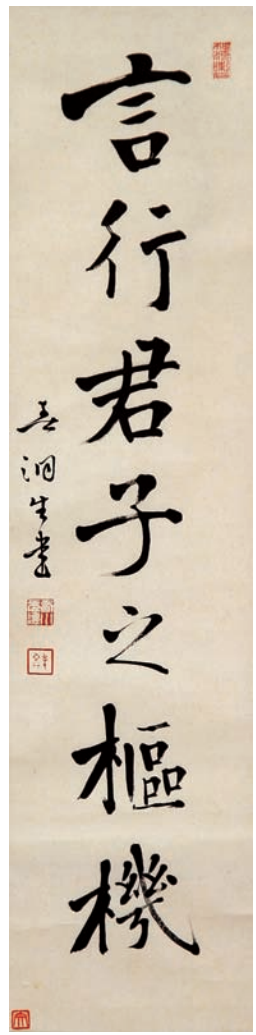 言行君子之樞機
洞生書